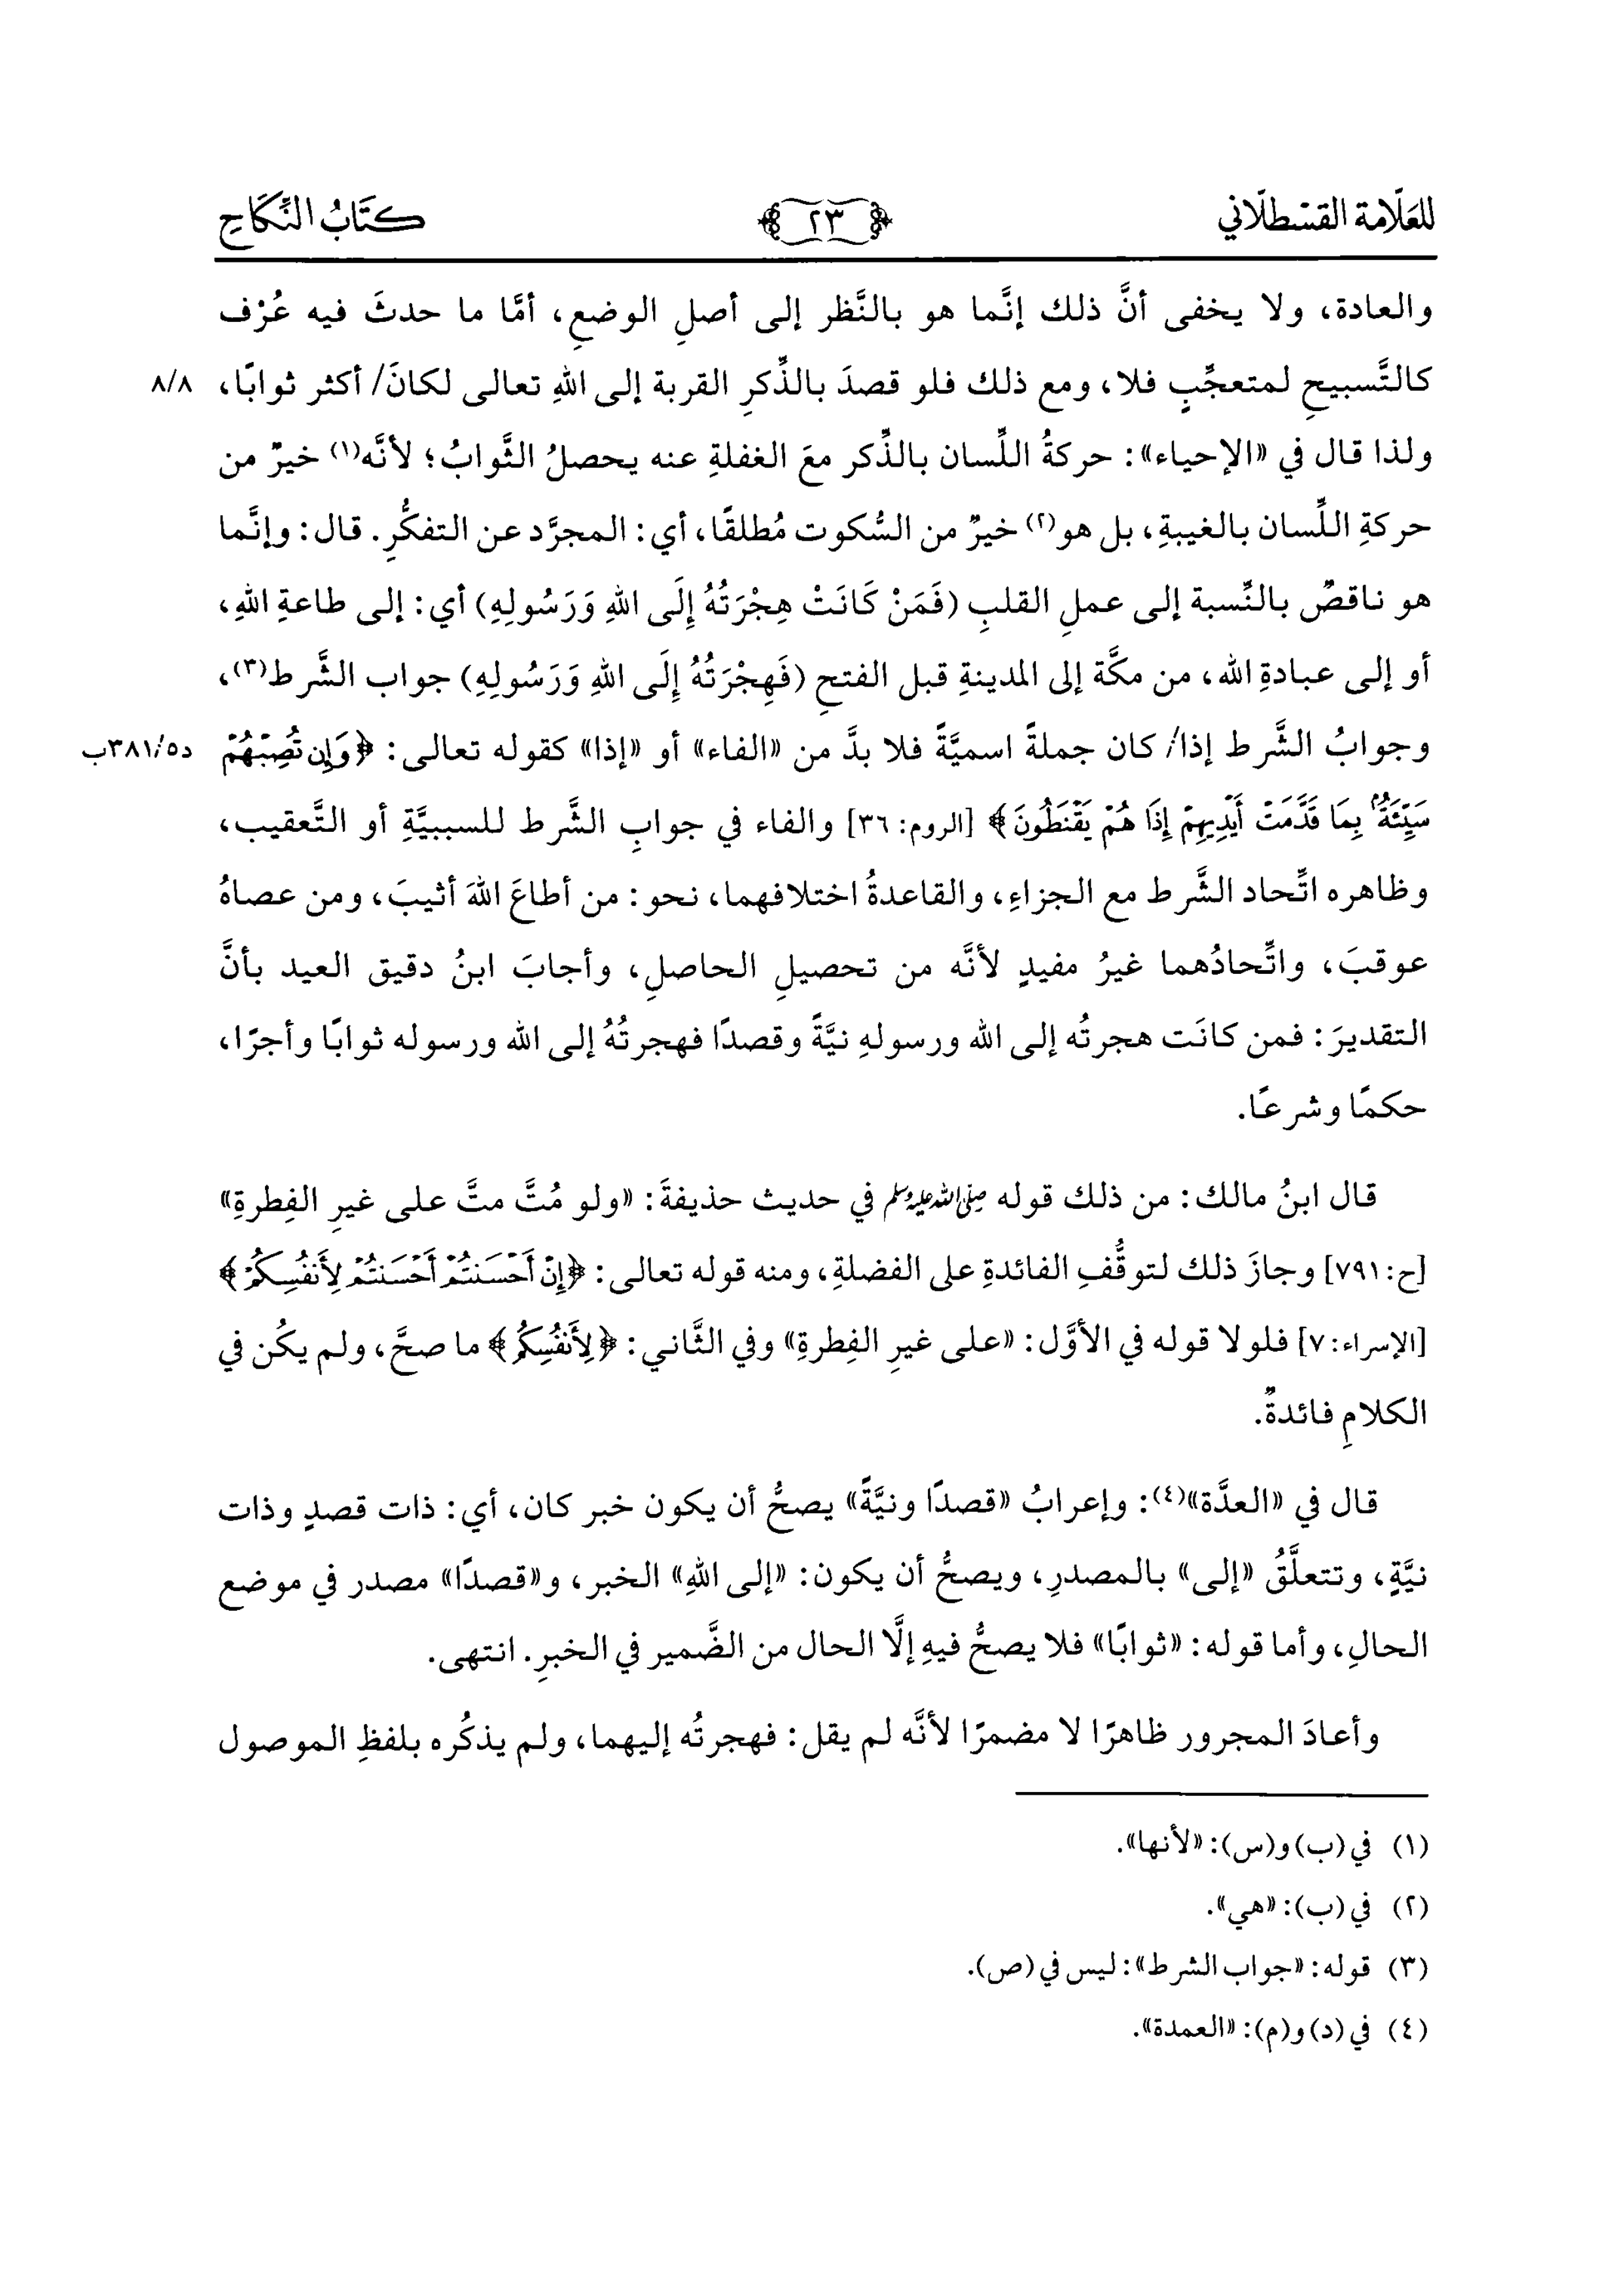 للعلّامة القسطلّاني ٢٣ كتَابُ النِّكَاحِ
والعادة، ولا يخفى أنَّ ذلك إنَّما هو بالنَّظر إلى أصلِ الوضعِ، أمَّا ما حدثَ فيه عُرْف
كالتَّسبيحِ لمتعجِّبٍ فلا، ومع ذلك فلو قصدَ بالذِّكرِ القربة إلى اللهِ تعالى لكانَ/ أكثر ثوابًا، ٨/٨
ولذا قال في «الإحياء»: حركةُ اللِّسان بالذِّكر معَ الغفلةِ عنه يحصلُ الثَّوابُ؛ لأنَّه(١) خيرٌ من
حركةِ اللِّسان بالغيبةِ، بل هو(٢) خيرٌ من السُّكوت مُطلقًا، أي: المجرَّد عن التفكُّرِ. قال: وإنَّما
هو ناقصٌ بالنِّسبة إلى عملِ القلبِ (فَمَنْ كَانَتْ هِجْرَتُهُ إِلَى اللهِ وَرَسُولِهِ) أي: إلى طاعةِ اللهِ،
أو إلى عبادةِ الله، من مكَّة إلى المدينةِ قبل الفتحِ (فَهِجْرَتُهُ إِلَى اللهِ وَرَسُولِهِ) جواب الشَّرط(٣)،
وجوابُ الشَّرط إذا/ كان جملةً اسميَّةً فلا بدَّ من «الفاء» أو «إذا» كقوله تعالى: ﴿وَإِن تُصِبْهُمْ د٣٨١/٥ب
سَيِّئَةٌۢ بِمَا قَدَّمَتْ أَيْدِيهِمْ إِذَا هُمْ يَقْنَطُونَ﴾ [الروم: ٣٦] والفاء في جوابِ الشَّرط للسببيَّةِ أو التَّعقيب،
وظاهره اتِّحاد الشَّرط مع الجزاءِ، والقاعدةُ اختلافهما، نحو: من أطاعَ اللهَ أثيبَ، ومن عصاهُ
عوقبَ، واتِّحادُهما غيرُ مفيدٍ لأنَّه من تحصيلِ الحاصلِ، وأجابَ ابنُ دقيق العيد بأنَّ
التقديرَ: فمن كانَت هجرتُه إلى الله ورسولهِ نيَّةً وقصدًا فهجرتُهُ إلى الله ورسوله ثوابًا وأجرًا،
حكمًا وشرعًا.
قال ابنُ مالك: من ذلك قوله صلى الله عليه وسلم في حديث حذيفةَ: «ولو مُتَّ متَّ على غيرِ الفِطرةِ»
[ح: ٧٩١] وجازَ ذلك لتوقُّفِ الفائدةِ على الفضلةِ، ومنه قوله تعالى: ﴿إِنْ أَحْسَنتُمْ أَحْسَنتُمْ لِأَنفُسِكُمْ﴾
[الإسراء: ٧] فلولا قوله في الأوَّل: «على غيرِ الفِطرةِ» وفي الثَّاني: ﴿لِأَنفُسِكُمْ﴾ ما صحَّ، ولم يكُن في
الكلامِ فائدةٌ.
قال في «العدَّة»(٤): وإعرابُ «قصدًا ونيَّةً» يصحُّ أن يكون خبر كان، أي: ذات قصدٍ وذات
نيَّةٍ، وتتعلَّقُ «إلى» بالمصدرِ، ويصحُّ أن يكون: «إلى اللهِ» الخبر، و«قصدًا» مصدر في موضع
الحالِ، وأما قوله: «ثوابًا» فلا يصحُّ فيهِ إلَّا الحال من الضَّمير في الخبرِ. انتهى.
وأعادَ المجرور ظاهرًا لا مضمرًا لأنَّه لم يقل: فهجرتُه إليهما، ولم يذكُره بلفظِ الموصول
(١) في (ب) و(س): «لأنها».
(٢) في (ب): «هي».
(٣) قوله: «جواب الشرط»: ليس في (ص).
(٤) في (د) و(م): «العمدة».